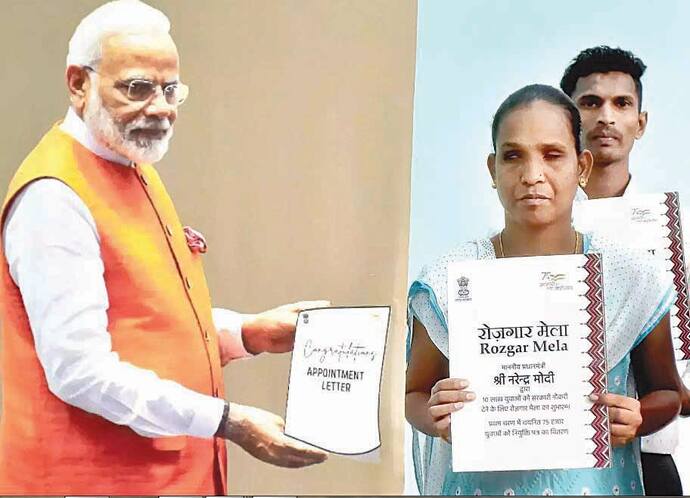 Congratulations
APPOINTMENT
LETTER
रोज़गार मेला
Rozgar Mela
माननीय प्रधानमंत्री
श्री नरेन्द्र मोदी
द्वारा
10 लाख युवाओं को सरकारी नौकरी
देने के रोज़गार मेला का शुभारम्भ
प्रथम चरण में चयनित 75 हजार
युवाओं को नियुक्ति पत्र का वितरण